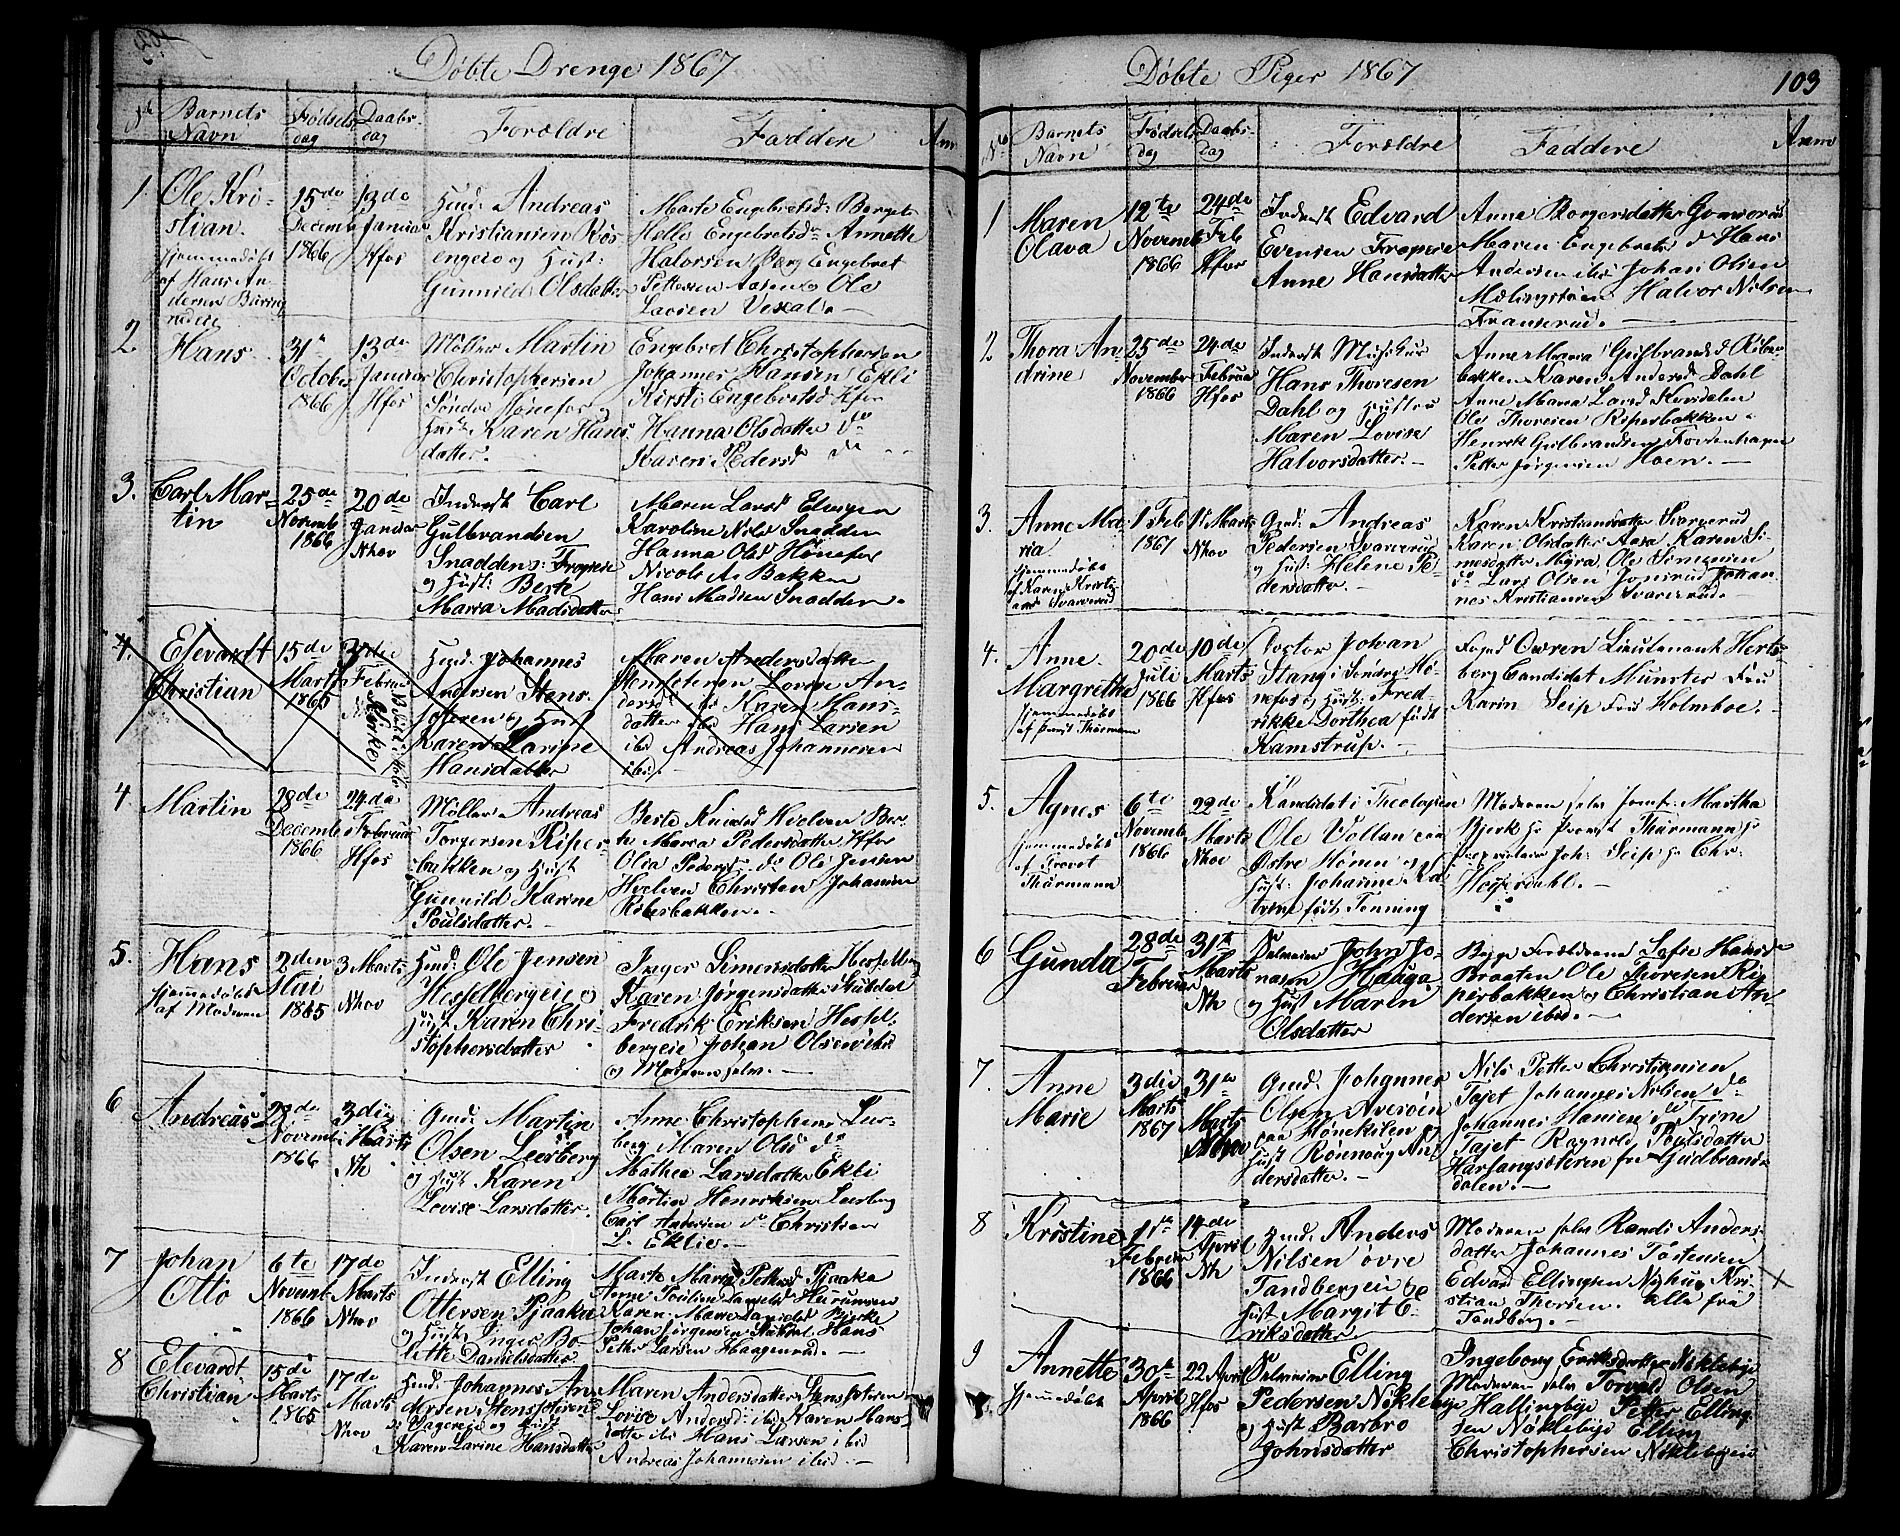 Døbte Drenge 1867
Barnets Navn
Fødsels dag
Daabs- dag
Forældre
Faddere
Anm
1.
Ole Kri-
stian.
Hjemmedøbt
af Hans An-
dersen
15de
Decemb
1866
13de
Januar
Hfos
Andreas
Kristiansen
og Hust:
Gunnild Olsdatter
Marte Engebretsd:
Helle Engebretsd Annette
Halvorsen Berg Engebret
Pettersen Aasen Ole
Larsen
2.
Hans
31te
Octobe
1866
13de
Januar
Hfos
Møller Martin
Christophersen
Søndre Hønefos
Hust: Karen Hans
datter.
Engebret Christophersen
Johannes Hansen Ekli
Kirsti Engebretsd Hfos
Hanna Olsdatter do
Karen Pedersd do
3.
Carl Mar-
tin
25de
Novemb
1866
20de
Januar
Nhov
Inderst Carl
Gulbrandsen
Snadden:
og Hust: Berte
Maria Madsdatter
Maren Larsd
Karoline Nilsd Snadden
Hanna Olsd Hønefos
Nicolai Bakken
Hans Madsen Snadden.
4.
Elevardt
Christian
15de
Marts
1865
3die
Februar
Johannes
Andersen Stens-
Karen Larine
Hansdatter
Maren Andersdatter
Lovise An-
Karen Hans-
datter ibd Hans Larsen
ibd Andreas Johannesen
ibd.
4.
Martin
28de
Decemb
1866
24de
Februar
Hfos
Møller Andreas
Torgersen Riper-
bakken og Hust
Gunnild Karine
Poulsdatter.
Berte Knudsd Hvelven Ber-
te Maria Pedersdatter Hfos
Olia Pedersd do Ole Jensen
Hvelven Christen Johansen
Ribesbakken.
5.
Hans
Hjemmedøbt
af Moderen
2den
Mai
1865
3 Marts
Nhov
Huusd: Ole Jensen
Hesselbergeie og
Hust Karen Chri-
stophersdatter
Inger Simensdatter Hesselberg
Karen Jørgensdatter
Fredrik Eriksen Hessel-
bergeie Johan Olsen ibd
og Moderen selv.
6
Andreas
23de
Novemb
1866
3die
Marts
Nh
Gmd: Martin
Olsen Leesberg
og Hust Karen
Lovise Larsdatter.
Anne Christophersd Lees-
berg Maren Olsd do
Mathea Larsdatter Ekli
Martin Henriksen Leesberg
Carl Andersen do Christian
L. Eklie.
7
Johan
Otto
6te
Novemb
1866
17de
Marts
Nhov
Inderst Elling
Ottersen Pjaaka
og Hust: Inger Bo-
lette Danielsdatter
Marte Marie Pettersd Pjaaka
Karen Marie Danielsd Bjerke
Johan Jørgensen Hans
Petter Larsen Haagenrud.
8
Elevardt
Christian
15de
Marts
1865
17de
Marts
Nhov
Huusd: Johannes An-
dersen Stensoteren
og Hust
Karen Larine Hansdatter
Maren Andersdatter Stensoteren
Lovise Andersd: ibd Karen Hans-
datter ibd Hans Larsen ibid
Andreas Johannesen ibid.
Døbte Piger 1867
103
No
Barnets Navn
Fødsels dag
Daabs- dag
Forældre
Faddere
Anm
1
Maren
Olava
12te
Novemb
1866
24de
Feb
Hfos
Inderst Edvard
Evensen
Anne Hansdatter
Anne Borgersdatter
Maren Engebretsd Hans
Andersen ibd Johan Olsen
Halvor Nilsen
Franserud.
2
Thora An
drine
25de
November
1866
24de
Februar
Hfos
Inderst
Hans Thoresen
Dahl og Hustru
Maren Lovise
Halvorsdatter.
Anne Maria Gulbrandsd Riber-
bakken Karen Andersd Dahl
Anne Maria Larsd
Ole Thoresen Riperbakken
Henrik Gulbrandsen
Petter Jørgensen Hoen.
3.
Anne Ma-
ria
Hjemmedøbt
af Karen Kristi-
ansd Svarverud
1 Feb
1867
1 Marts
Nhov
Gmd: Andreas
Pedersen Svarverud
og Hust: Helene Pe-
dersdatter.
Karen Kristiansdatter Svarverud
Karen Olsdatter Aasa Karen Si-
mensdatter Myra Ole Simensen
do Lars Olsen Jonsrud Johan
nes Kristiansen Svarverud.
4.
Anne
Margrethe
Hjemmedøbt
af Provst Thurmann
20de
Juli
1866
10de
Marts
Hfos
Doctor Johan
Stang i Søndre Hø-
nefos og Hust: Fred-
rikke Dorthea født
Kamstrup.
Foged Owren Lieutenant Herts-
berg Candidat Münster Fru
Karin Seip Fru Holmboe.
5.
Agnes
Hjemmedøbt
af Provst
Thurmann
6te
Novemb
1866
22de
Marts
Nhov
Kandidat i Theologien
Ole Vollan paa
Østre Hønen og
Hust: Johanne Ka
trine født Tonning
Moderen selv Jomf: Martha
Bjerk Hr Provst Thurmann Hr
Proprietær Joh: Seip Hr Chr.
6
Gunda
28de
Februar
31te
Marts
Nh
Selveier John Jo-
nasen Haaga
og Hust Maren
Olsdatter
Begge Forældrene Sofie Hansd
Braaten Ole Thoresen Rip
perbakken og Christian An
dersen ibid.
7.
Anne
Marie
3die
Marts
1867
31te
Marts
Nhov
Gmd: Johannes
Olsen Averøen
paa Hønekilen og
Hust Rønnoug An
dersdatter.
Nils Petter Christiansen
Tajet Johannes Nilsen do
Johannes Hansen do
Tajet Ragnild Poulsdatter
Harfangsoteren fra Gudbrands-
dalen.
8
Kristine
1te
Februar
1866
14de
April
Nh
Huusd: Anders
Nilsen øvre
Tandbergeie og
Hust Margit E-
riksdatter
Moderen selv Randi Anders-
datter Johannes Tostensen
Edvard Ellingsen Kri-
stian Thorsen. alle fra
Tandberg.
X
9
Annette
Hjemmedøbt
30te
April
1866
22 April
Hfos
Selveier Elling
Pedersen Nøklebye
og Hust Barbro
Johnsdatter
Ingeborg Eriksdatter Nøklebye
Moderen selv Torvald Olsen
Hallingbye Petter Elling
sen Nøklebye Elling
Christophersen Nøklebyeie